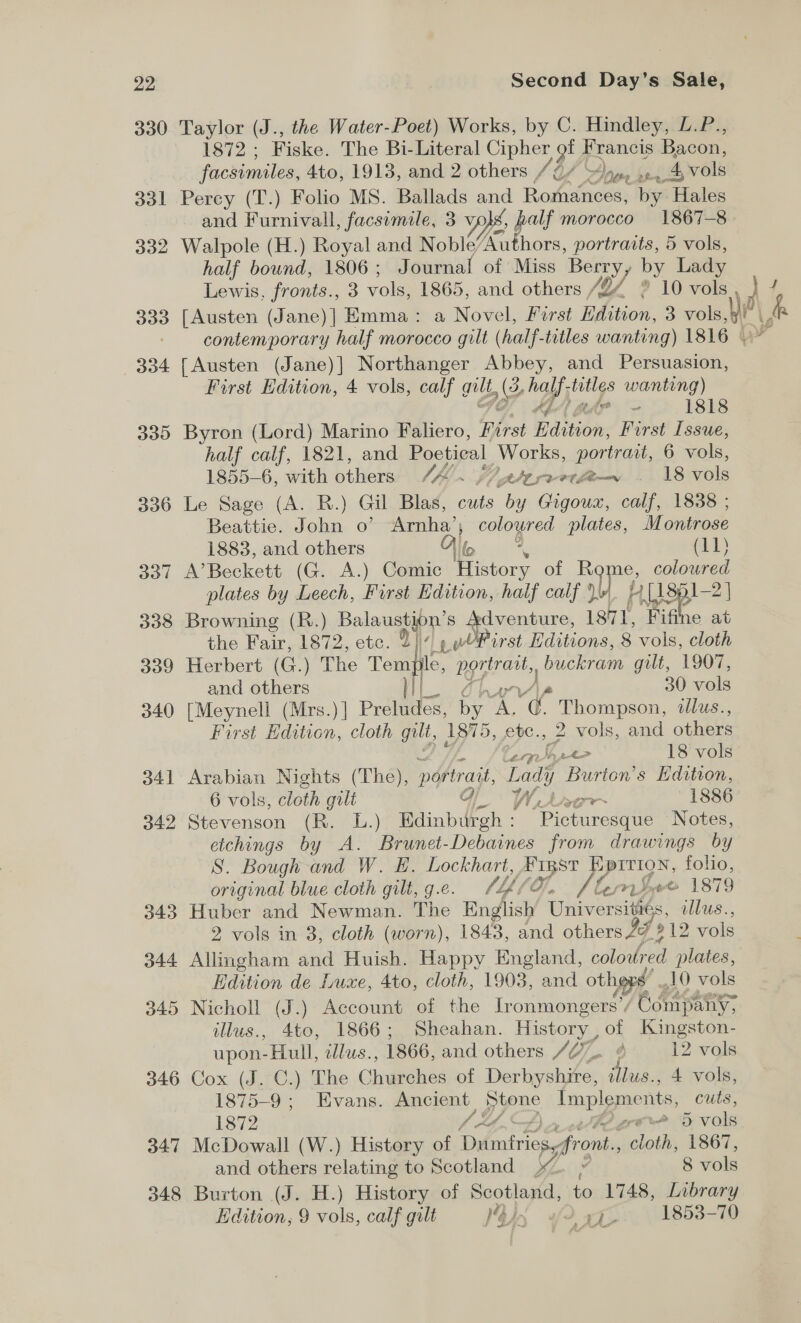 22 Second Day's Sale,
330 Taylor (J., the Water-Poet) Works, by C. Hindley, L.P.,
1872; Fiske. The Bi-Literal Cipher of Francis Bacon,
facsimiles, 4to, 1913, and 2 others 4 vols
331 Percy (T.) Folio MS. Ballads and Romances, by Hales
and Furnivall, facsimile, 3 vols, half morocco 1867-8
332 Walpole (H.) Royal and Noble Authors, portraits, 5 vols,
half bound, 1806; Journal of Miss Berry, by Lady
Lewis, fronts., 3 vols, 1865, and others 10 vols
333 [Austen (Jane)] Emma: a Novel, First Edition, 3 vols,
contemporary half morocco gilt (half-titles wanting) 1816
334 [Austen (Jane)] Northanger Abbey, and Persuasion,
First Edition, 4 vols, calf gilt (3, half-titles wanting)
1818
335 Byron (Lord) Marino Faliero, First Edition, First Issue,
half calf, 1821, and Poetical Works, portrait, 6 vols,
1855-6, with others 18 vols
336 Le Sage (A. R.) Gil Blas, cuts by Gigoux, calf, 1838;
Beattie. John o' Arnha', coloured plates, Montrose
1883, and others (11)
337 A'Beckett (G. A.) Comic History of Rome, coloured
plates by Leech, First Edition, half calf [1851-2]
338 Browning (R.) Balaustion's Adventure, 1871, Fifine at
the Fair, 1872, etc. First Editions, 8 vols, cloth
339 Herbert (G.) The Temple, portrait, buckram gilt, 1907,
and others 30 vols
340 [Meynell (Mrs.)] Preludes, by A. C. Thompson, illus.,
First Edition, cloth gilt, 1875, etc., 2 vols, and others
18 vols
341 Arabian Nights (The), portrait, Lady Burton's Edition,
6 vols, cloth gilt 1886
342 Stevenson (R. L.) Edinburgh: Picturesque Notes,
etchings by A. Brunet-Debaines from drawings by
S. Bough and W. E. Lockhart, First Edition, folio,
original blue cloth gilt, g.e. 1879
343 Huber and Newman. The English Universities, illus.,
2 vols in 3, cloth (worn), 1843, and others 12 vols
344 Allingham and Huish. Happy England, coloured plates,
Edition de Luxe, 4to, cloth, 1903, and others 10 vols
345 Nicholl (J.) Account of the Ironmongers' Company,
illus., 4to, 1866; Sheahan. History of Kingston-
upon-Hull, illus., 1866, and others 12 vols
346 Cox (J. C.) The Churches of Derbyshire, illus., 4 vols,
1875-9; Evans. Ancient Stone Implements, cuts,
1872 5 vols
347 McDowall (W.) History of Dumfries, front., cloth, 1867,
and others relating to Scotland 8 vols
348 Burton (J. H.) History of Scotland, to 1748, Library
Edition, 9 vols, calf gilt 1853-70